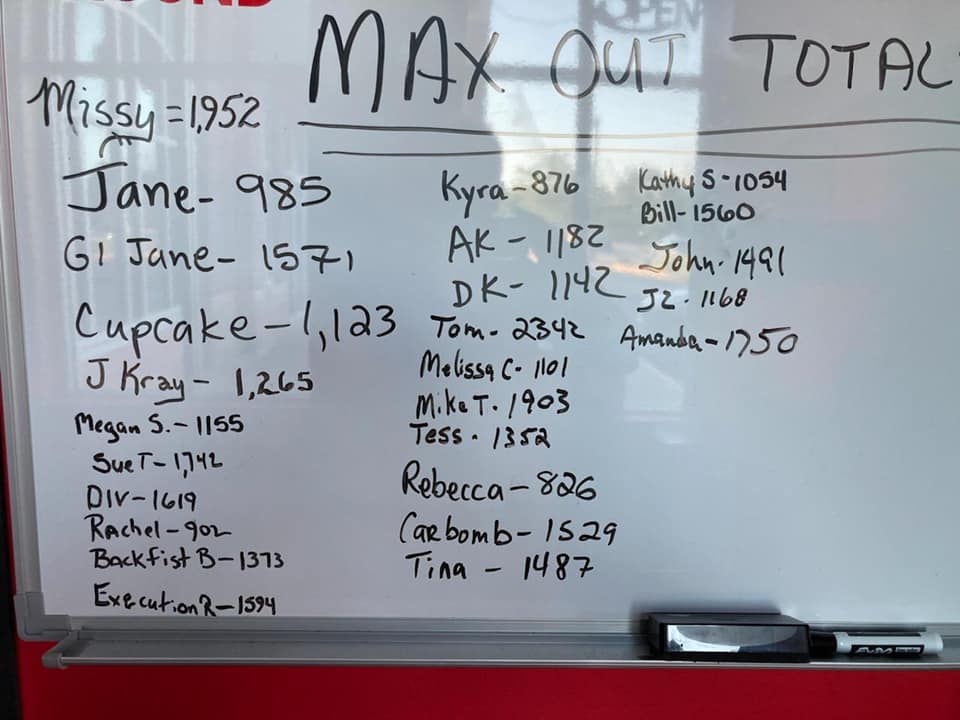 MAX OUT TOTAL
Missy = 1,952
Jane - 985
GI Jane - 1571
Cupcake - 1,123
J Kray - 1,265
Megan S. - 1155
Sue T - 1,742
DIV - 1619
Rachel - 902
Backfist B - 1373
Execution R - 1594
Kyra - 876
AK - 1182
DK - 1142
Tom - 2342
Melissa C - 1101
Mike T. 1903
Tess - 1352
Rebecca - 826
Carbomb - 1529
Tina - 1487
Kathy S - 1054
Bill - 1560
John - 1491
JZ - 1168
Amanda - 1750
OPEN